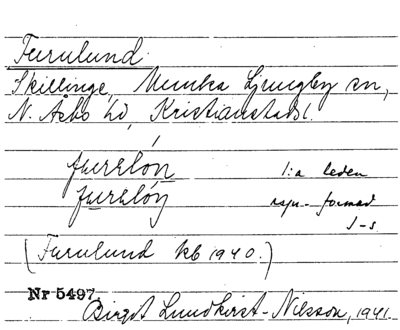 Furulund
Skillinge, Munka Ljungby sn,
N. Åsbo hd, Kristianstads l.
1:a leden
(Furulund kb 1940.)
Nr 5497
Birgit Lundkvist-Nilsson, 1941.